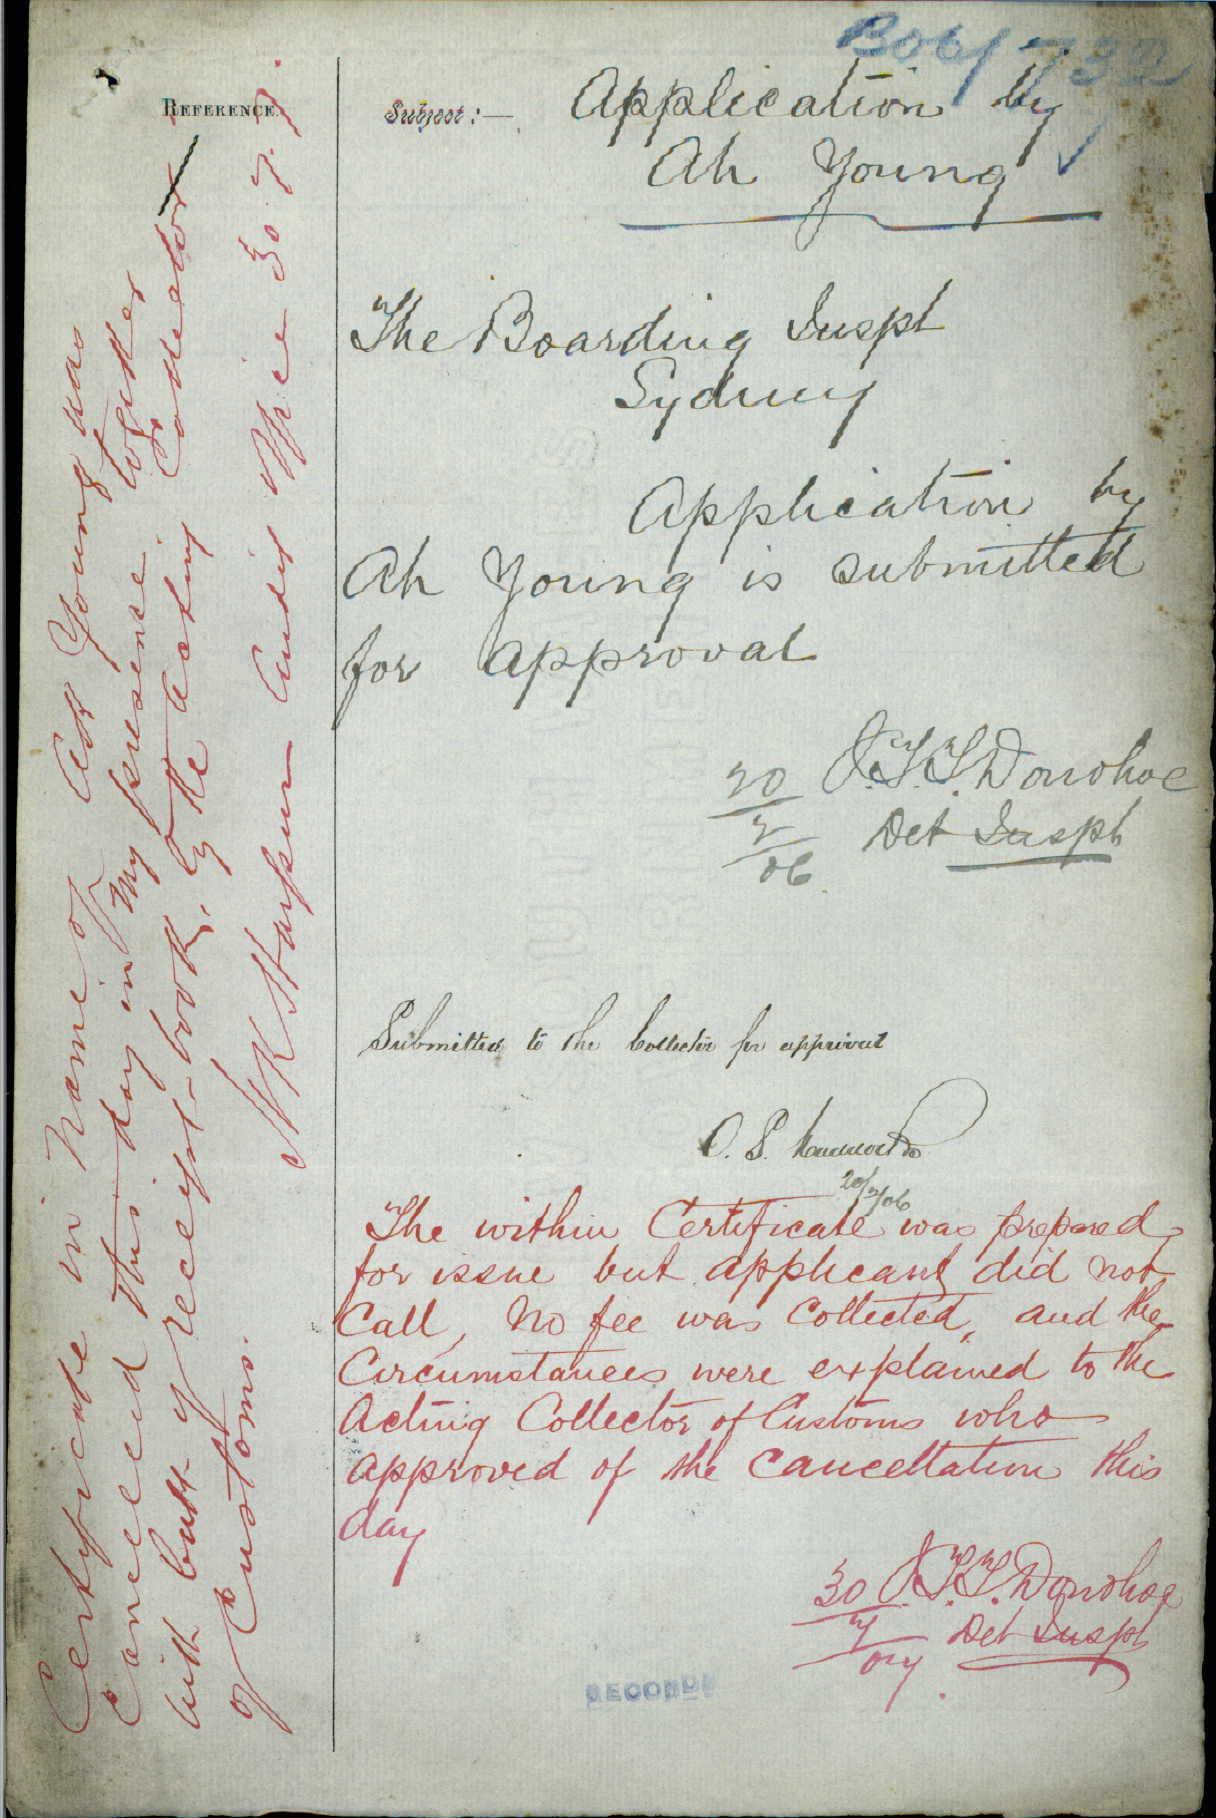 B06/732
REFERENCE.
Subject:— Application by
Ah Young
The Boarding Inspt
Sydney
Application by
Ah Young is submitted
for approval
J.T.T. Donohoe
20/7/06 Det Inspt
Submitted to the Collector for approval
O. S.
20/7/06
The within Certificate was prepared
for issue but applicant did not
Call, No fee was Collected, and the
Circumstances were explained to the
Acting Collector of Customs who
approved of the Cancellation this
day
30/7/07 J.T.T. Donohoe
Det Inspt
RECORDS
Certificate in name of Ah Young was
Cancelled this day in my presence together
with butt of receipt-book, by the Acting Collector
of Customs.
Audit Office 30.7.7.